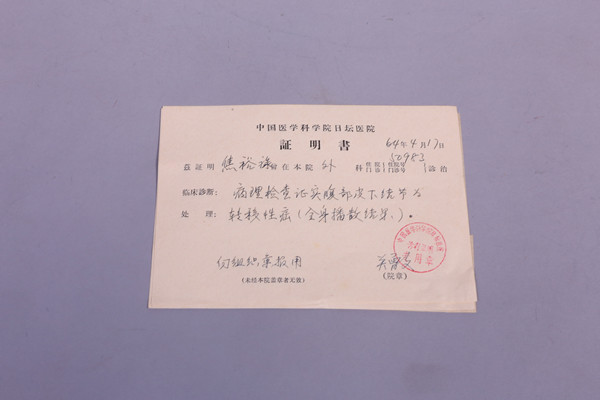 中国医学科学院日坛医院
証明書
64年4月17日
兹証明焦裕禄同志在本院外科 住院 门診 住院号 门診号 50983 診治
临床診断：病理检查证实腹部皮下结节为
处理：转移性癌（全身播散结果）。
组织
（未经本院盖章者无效）
（院章）
中国医学科学院
用章